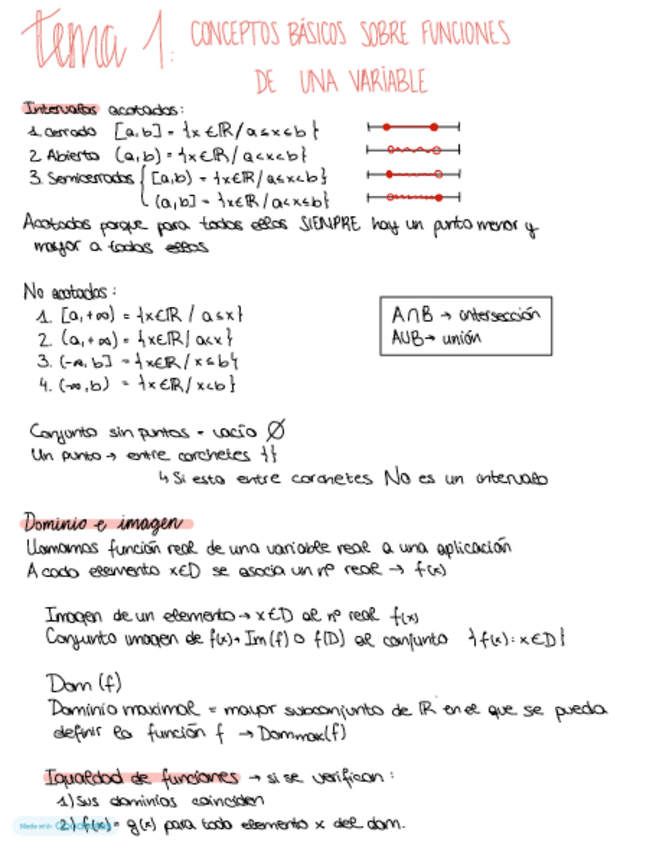 tema 1: CONCEPTOS BÁSICOS SOBRE FUNCIONES
DE UNA VARIABLE
Intervalos acotados:
1. Cerrado [a,b] = {x∈ℝ/a≤x≤b}
2. Abierto (a,b) = {x∈ℝ/a<x<b}
3. Semicerrados { [a,b) = {x∈ℝ/a≤x<b}
(a,b] = {x∈ℝ/a<x≤b}
Acotados porque para todos ellos SIEMPRE hay un punto menor y
mayor a todos ellos
No acotados:
1. [a,+∞) = {x∈ℝ / a≤x}
2. (a,+∞) = {x∈ℝ/ a<x}
3. (-∞,b] = {x∈ℝ/ x≤b}
4. (-∞,b) = {x∈ℝ/ x<b}
A∩B → intersección
A∪B → unión
Conjunto sin puntos = vacío ∅
Un punto → entre corchetes { }
↳ Si esta entre corchetes No es un intervalo
Dominio e imagen
Llamamos función real de una variable real a una aplicación
A cada elemento x∈D se asocia un nº real → f(x)
Imagen de un elemento → x∈D al nº real f(x)
Conjunto imagen de f(x) → Im(f) o f(D) al conjunto {f(x): x∈D}
Dom (f)
Dominio maximal = mayor subconjunto de ℝ en el que se pueda
definir la función f → Dommax(f)
Igualdad de funciones → si se verifican:
1) Sus dominios coinciden
2) f(x) = g(x) para todo elemento x del dom.
Made with